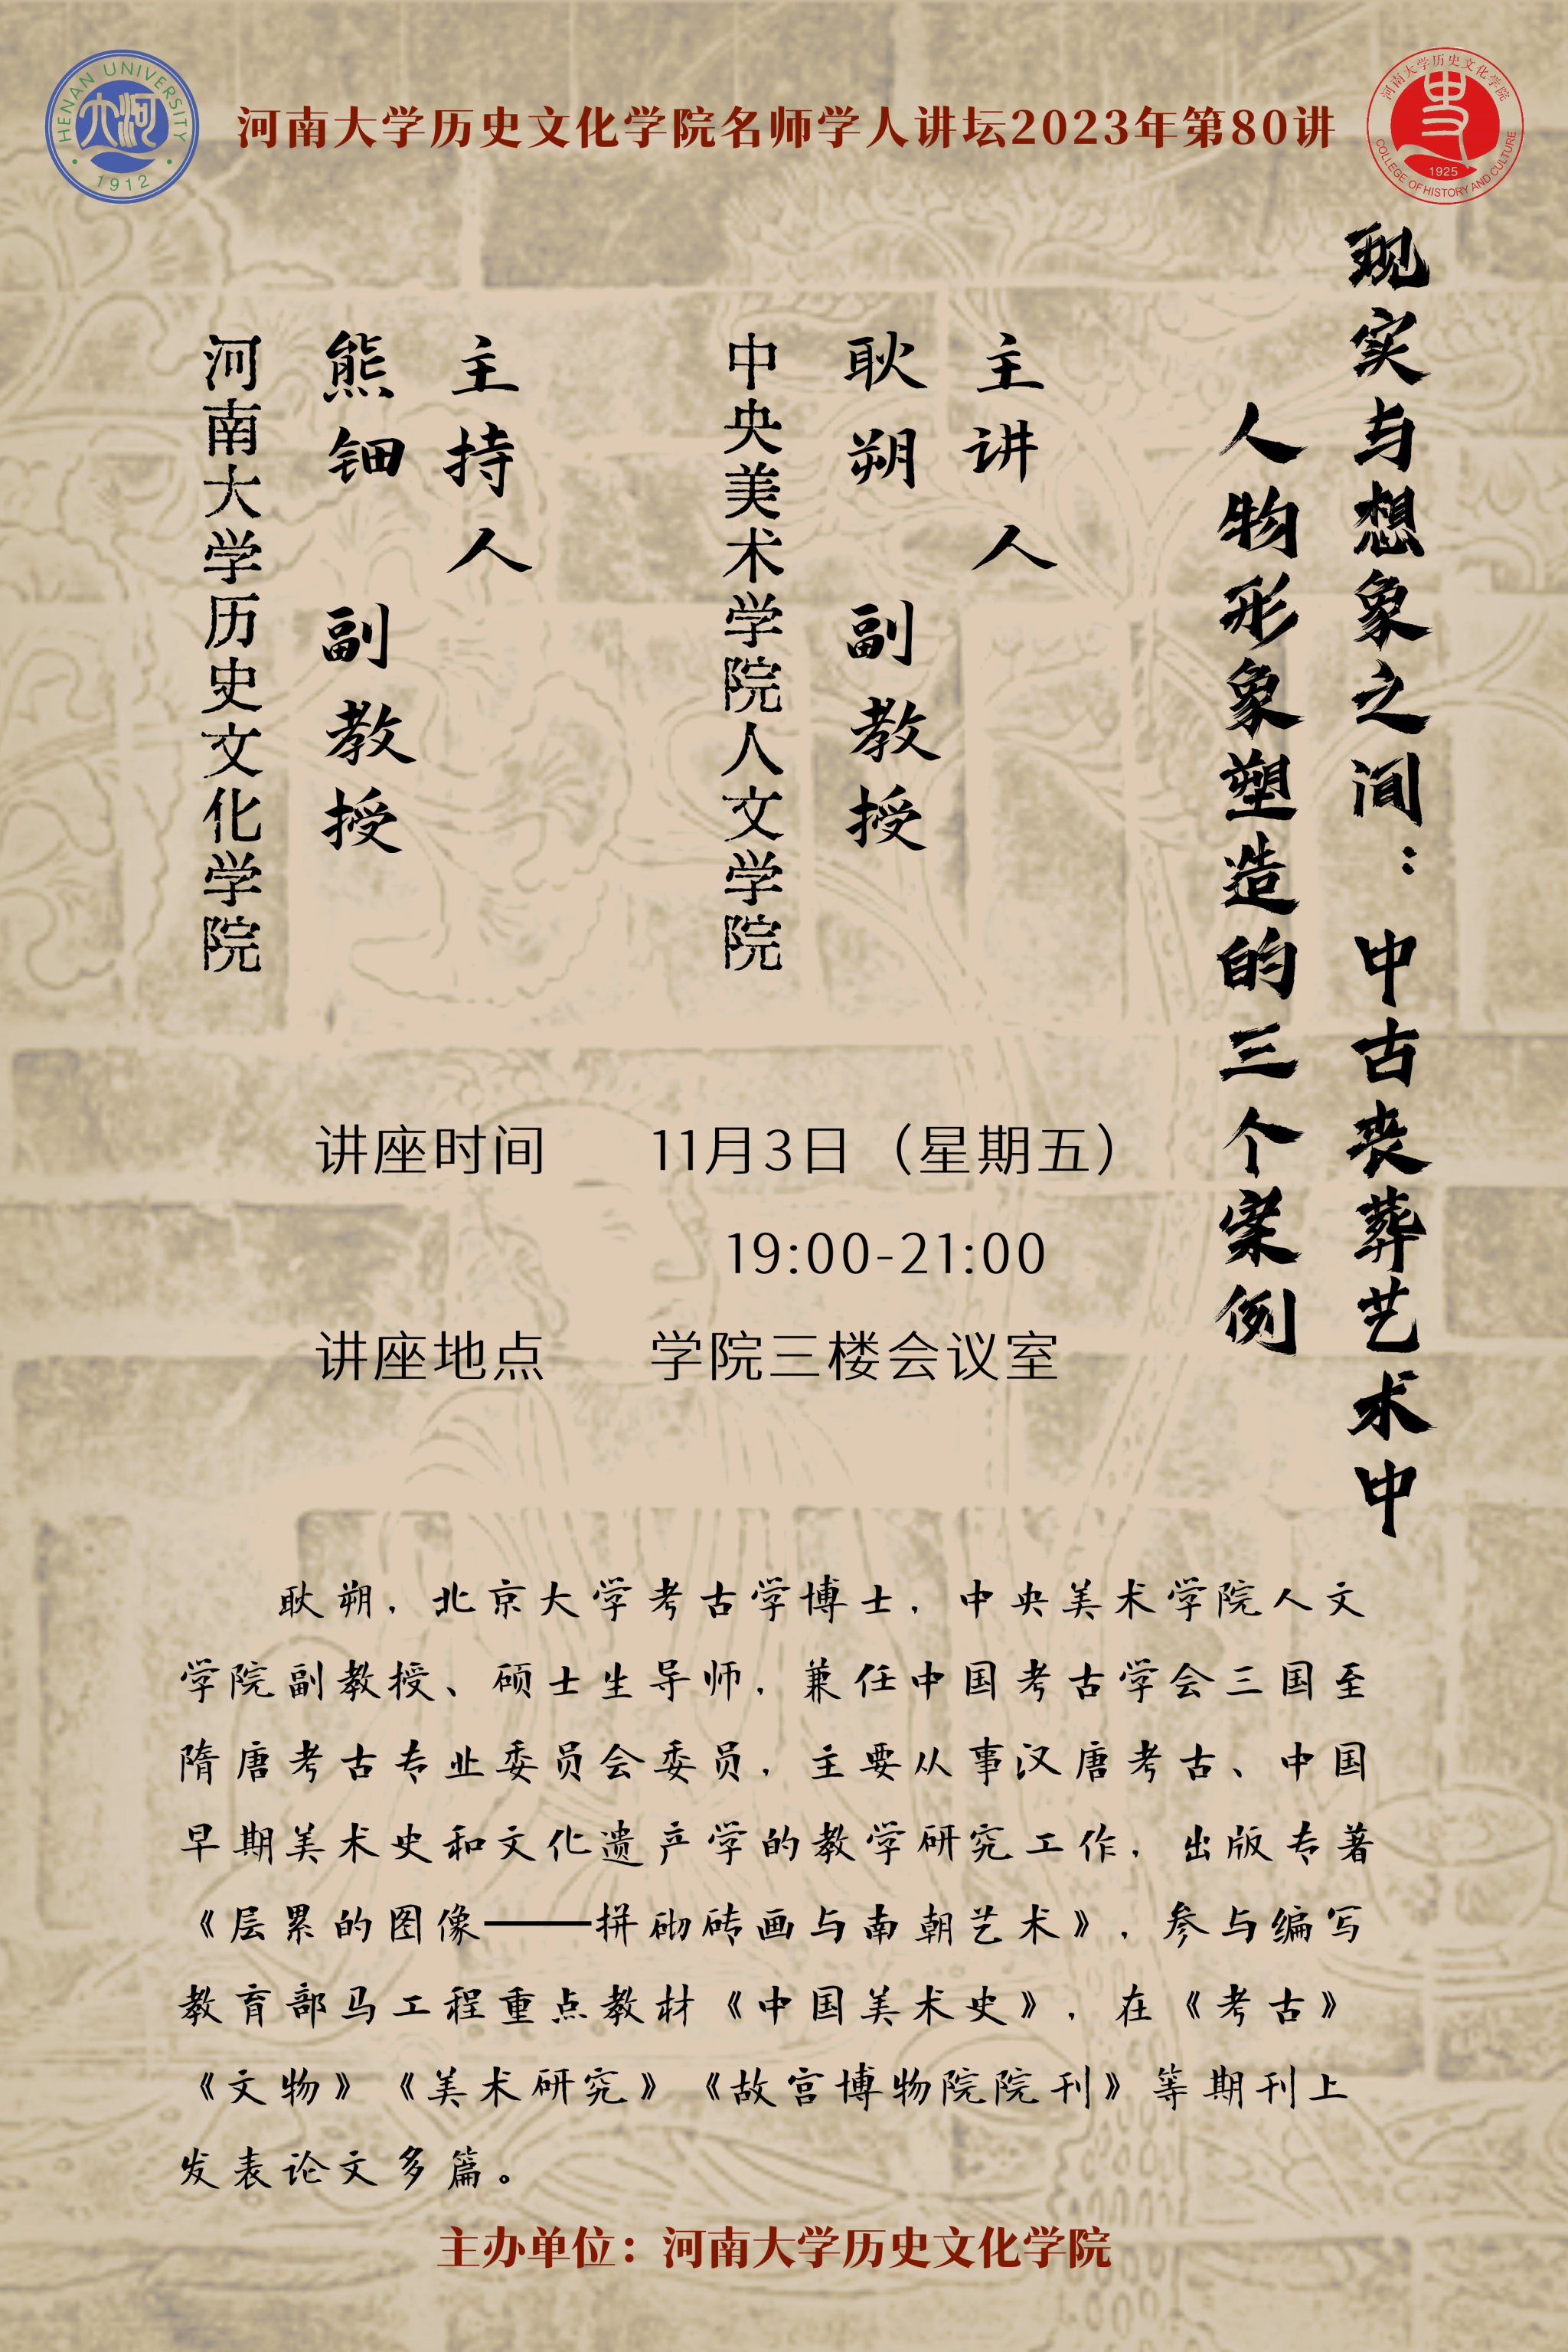 HENAN UNIVERSITY
大河
1912
河南大学历史文化学院名师学人讲坛2023年第80讲
河南大学历史文化学院
史
1925
COLLEGE OF HISTORY AND CULTURE
现实与想象之间：中古丧葬艺术中
人物形象塑造的三个案例
主讲人
耿朔 副教授
中央美术学院人文学院
主持人
熊钿 副教授
河南大学历史文化学院
讲座时间 11月3日（星期五）
19:00-21:00
讲座地点 学院三楼会议室
耿朔，北京大学考古学博士，中央美术学院人文
学院副教授、硕士生导师，兼任中国考古学会三国至
隋唐考古专业委员会委员，主要从事汉唐考古、中国
早期美术史和文化遗产学的教学研究工作，出版专著
《层累的图像——拼砌砖画与南朝艺术》，参与编写
教育部马工程重点教材《中国美术史》，在《考古》
《文物》《美术研究》《故宫博物院院刊》等期刊上
发表论文多篇。
主办单位：河南大学历史文化学院